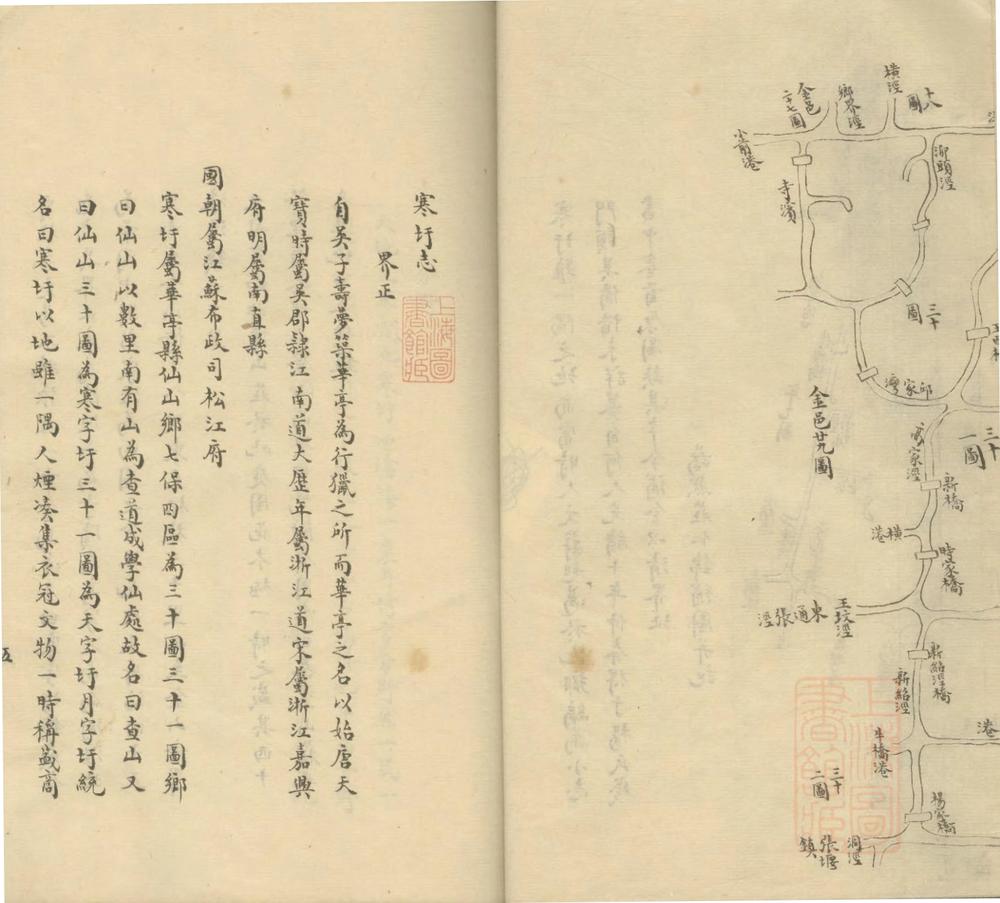 橫涇
十八圖
鄉界涇
金邑二十七圖
小葡港
湖頭涇
寺濱
三十圖
邱家灣
金邑廿九圖
三十一圖
家涇
新橋
橫港
時家橋
王坟涇
東通張涇
新紹涇橋
新紹涇
港
牛橋港
三十二圖
楊家橋
洞涇
張堰鎮
上海圖書館藏
寒圩志
界正
自吴子壽夢築華亭為行獵之所而華亭之名以始唐天
寶時屬吴郡隸江南道大歷年屬浙江道宋屬浙江嘉興
府明屬南直縣
國朝屬江蘇布政司松江府
寒圩屬華亭縣仙山鄉七保四區為三十圖三十一圖鄉
曰仙山以數里南有山為查道成學仙處故名曰查山又
曰仙山三十圖為寒字圩三十一圖為天字圩月字圩統
名曰寒圩以地雖一隅人煙湊集衣冠文物一時稱盛商
五
上海圖書館藏